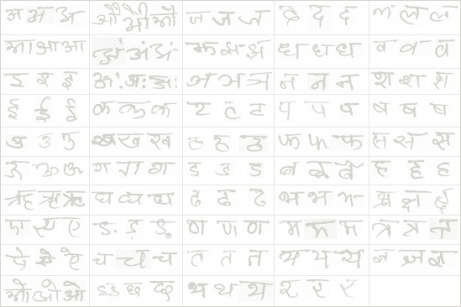 अ अ अ औ औ औ ज ज ज द द द ल ल ल
आ आ आ अं अं अं झ झ झ ध ध ध व व व
इ इ इ अः अः अः ञ ञ ञ न न न श श श
ई ई ई क क क ट ट ट प प प ष ष ष
उ उ उ ख ख ख ठ ठ ठ फ फ फ स स स
ऊ ऊ ऊ ग ग ग ड ड ड ब ब ब ह ह ह
ऋ ऋ ऋ घ घ घ ढ ढ ढ भ भ भ क्ष क्ष क्ष
ए ए ए ङ ङ ङ ण ण ण म म म त्र त्र त्र
ऐ ऐ ऐ च च च त त त य य य ज्ञ ज्ञ ज्ञ
ओ ओ ओ छ छ छ थ थ थ र र र